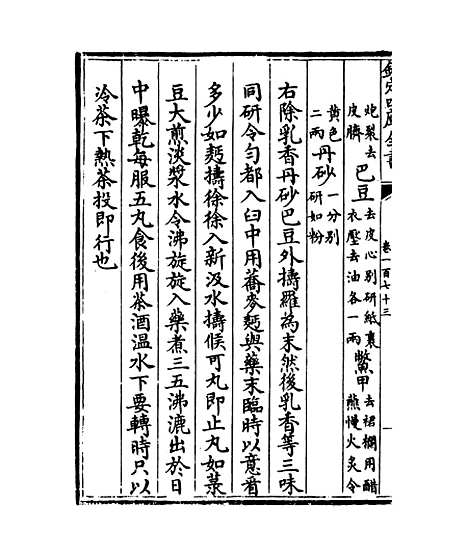 欽定四庫全書
卷一百七十三
炮裂去皮臍 巴豆 去皮心别研紙裏衣壓去油各一兩 鱉甲 去裙襴用醋蘸慢火炙令
黄色二兩 丹砂 一分别研如粉
右除乳香丹砂巴豆外擣羅為末然後乳香等三味
同研令勻都入臼中用蕎麥麪與藥末臨時以意看
多少如麪擣徐徐入新汲水擣候可丸即止丸如菉
豆大煎淡漿水令沸旋旋入藥煮三五沸漉出於日
中曝乾每服五丸食後用茶酒温水下要轉時只以
冷茶下熱茶投即行也